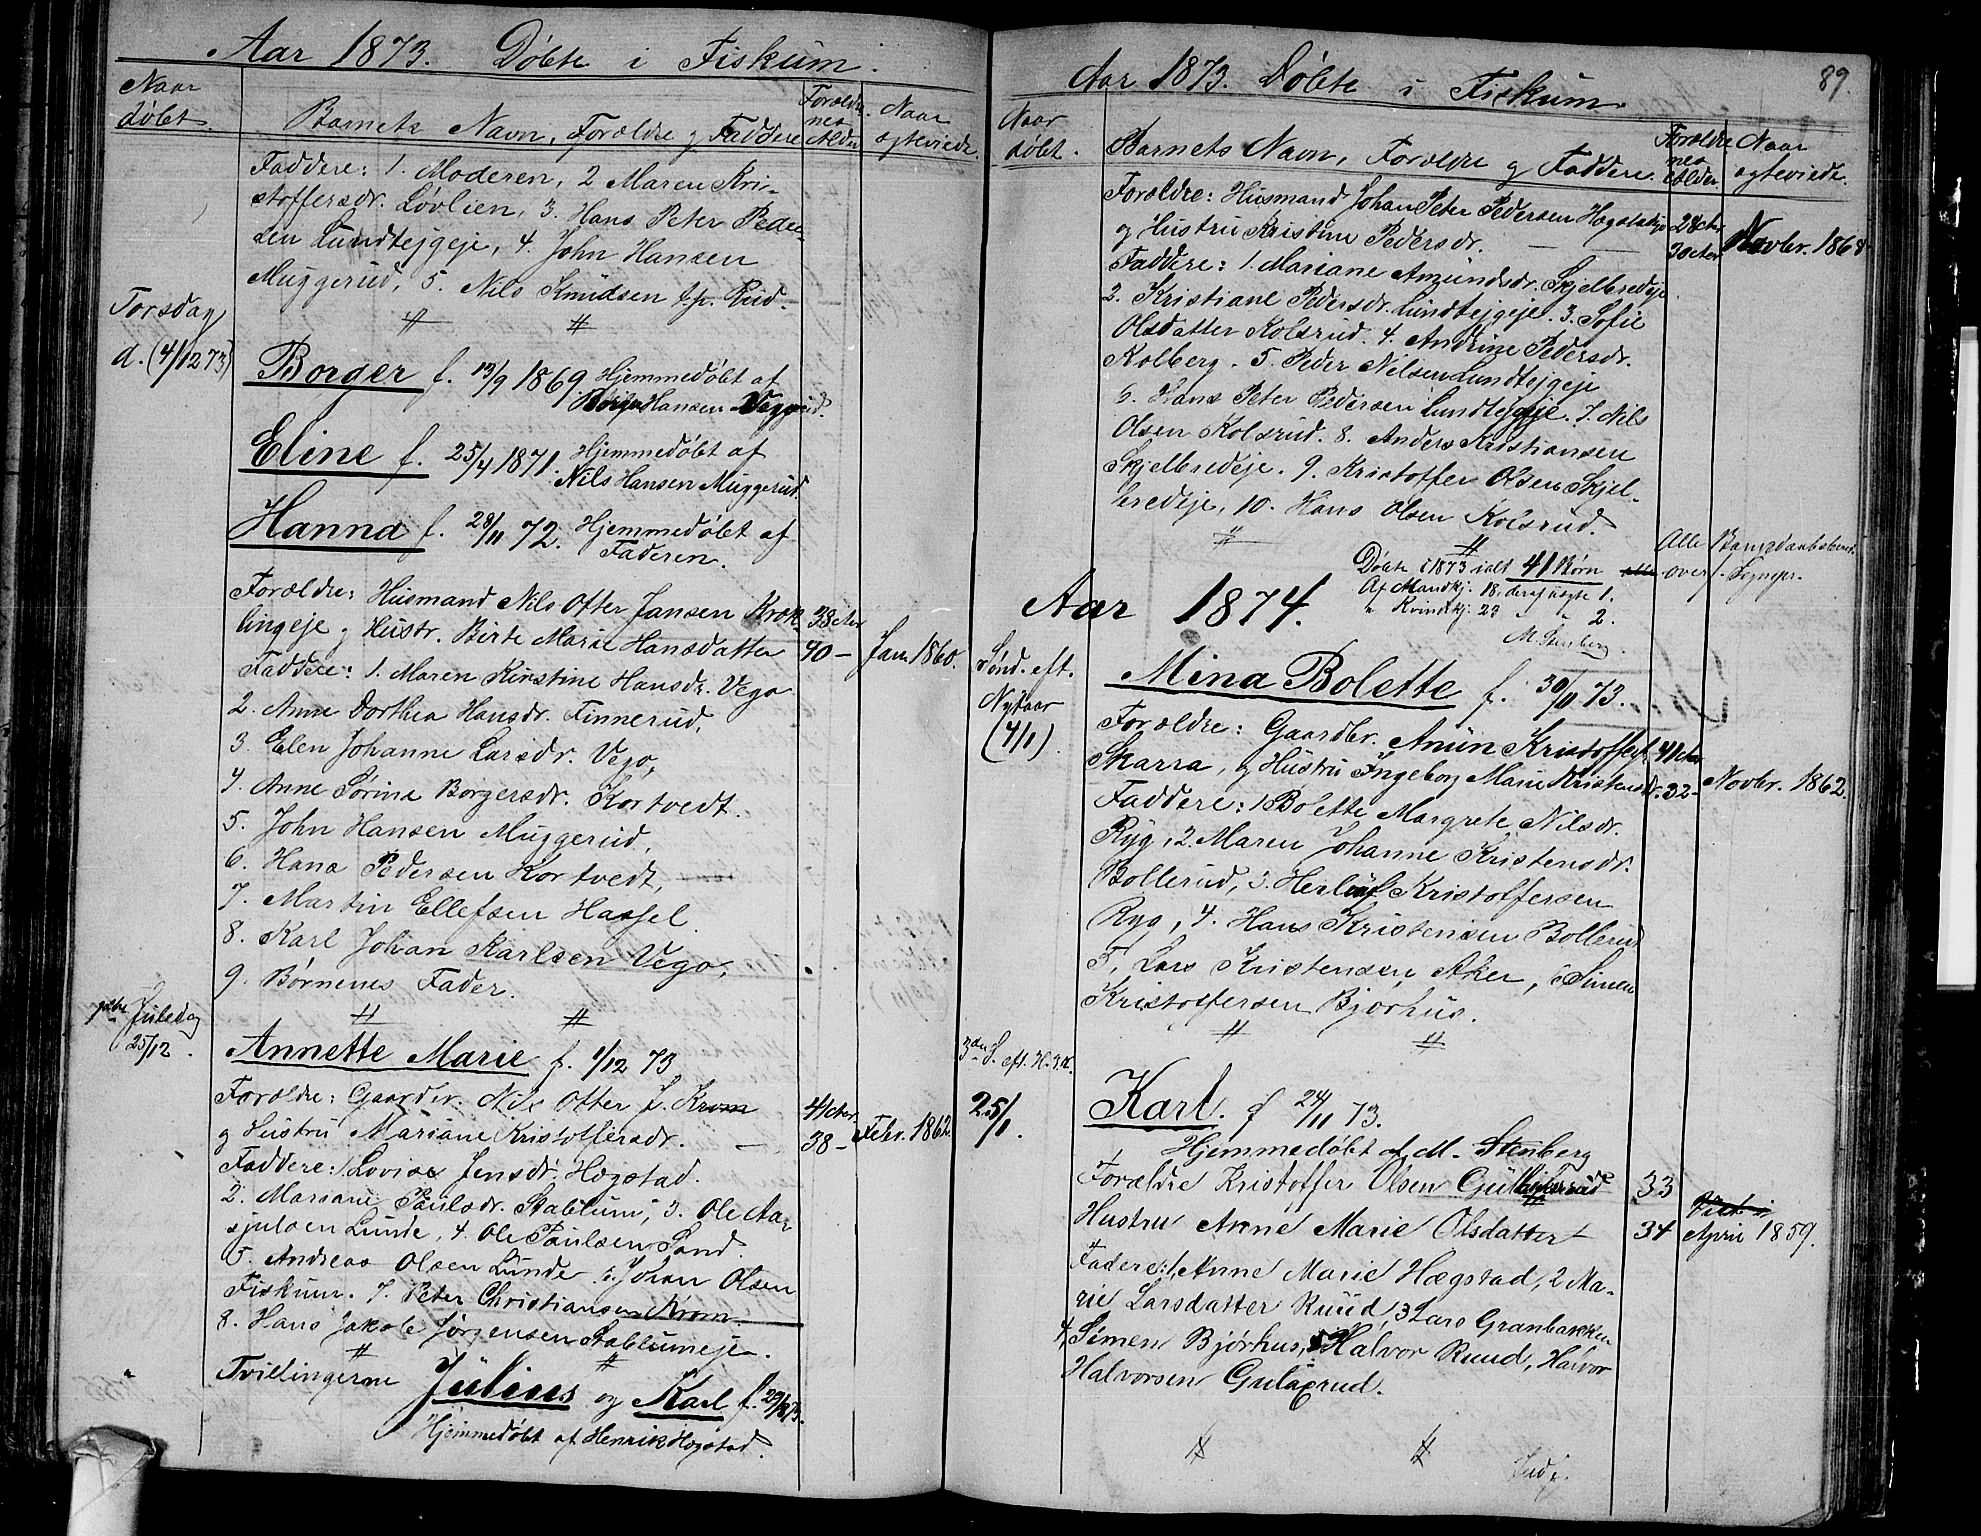 Aar 1873. Döbte i Fiskum.
Naar døbt.
Barnets Navn, Forældre og Faddere
Forældrenes Alder
Naar ægteviede.
Faddere: 1. Moderen, 2 Maren Kri-
stoffersdr. Løvlien, 3. Hans Peter Peder-
sen Lundtejgeje, 4. John Hansen
Muggerud, 5. Nils Knudsen Rud.
Torsdag
d. (4/12 73)
Borger f. 13/9 1869 Hjemmedøbt af
Hansen Veggerud.
Eline f. 25/4 1871. Hjemmedøbt af
Nils Hansen Muggerud.
Hanna f. 28/11 72. Hjemmedøbt af
Faderen.
Forældre: Husmand Nils Otter Jansen Krok- 38 Aar
lingeje og Hustr. Birte Marie Hansdatter 40 - Jan. 1860.
Faddere: 1. Maren Kirstine Hansdr. Vego
2. Anne Dorthea Hansdr. Finnerud,
3. Elen Johanne Larsdr. Vego,
4. Anne Sørine Borgersdr. Kortvedt.
5. John Hansen Muggerud,
6. Hans Pedersen Kortvedt,
7. Martin Ellefsen Hassel.
8. Karl Johan Karlsen Vego,
9. Børnenes Fader.
Juledag
25/12.
Annette Marie f. 1/12 73
Forældre: Gaardbr. Nils Otter J. Krom 41 Aar
og Hustru Mariane Kristoffersdr. - 38 - Febr. 1862.
Faddere: 1 Lovise Jensdr. Hægstad.
2. Mariane Paulsdr. Stablum, 3. Ole Aa-
sjulsen Lunde, 4. Ole Paulsen Sand.
5. Andreas Olsen Lunde 6. Johan Olsen
Fiskum. 7. Peter Christiansen Krom.
8. Hans Jakob Jørgensen Stablumeje.
Tvillingerne Julius og Karl f.
Hjemmedøbt af Henrik Hægstad.
89.
Aar 1873. Döbte i Fiskum
Naar døbt.
Barnets Navn, Forældre og Faddere.
Forældrenes Alder
Naar ægteviede.
Forældre: Husmand Johan Peter Pedersen 28 Aar
og Hustru Kristine Pedersdr. - 30 Aar Novbr. 1868
Faddere: 1. Mariane Amundsdr. Skjelbredeje
2. Kristiane Pedersdr. Lundtejgeje. 3. Sofie
Olsdatter Kolsrud. 4. Andrine Pedersdr.
Kolberg. 5. Peder Nilsen Lundtejgeje
6. Hans Peter Pedersen Lundtejgeje. 7. Nils
Olsen Kolsrud. 8. Anders Kristiansen
Skjelbredeje. 9. Kristoffer Olsen Skjel-
bredeje, 10. Hans Olsen Kolsrud.
Døbte i 1873 ialt 41 Børn
Af Mandkj. 18, deraf uægte 1.
" Kvindekj. 23 " 2.
M. Stenberg.
Alle
overf.
Aar 1874.
Sönd. eft.
Nytaar
(4/1).
Mina Bolette f. 30/11 73.
Forældre: Gaardbr. Anun Kristoffers. 41 Aar
Skarra, og Hustru Ingeborg Marie Kristensdr. 32 - Novbr. 1862.
Faddere: 1 Bolette Margrete Nilsdr.
Ryg, 2. Maren Johanne Kristensdr.
Bollerud, 3. Herlauf Kristoffersen
Ryg, 4. Hans Kristensen Bollerud
5, Lars Kristensen Aker, 6 Simen
Kristoffersen Bjorhus.
3die S. eft. H. 3 K.
25/1.
Karl. f 24/11 73.
Hjemmedøbt af M. Stenberg
Forældre Kristoffer Olsen 33
Hustru Anne Marie Olsdatter 34 April 1859.
Fadere: 1, Anne Marie Hægstad, 2 Ma-
rie Larsdatter Ruud, 3 Lars Granbakken
4 Simen Bjørhus, 5 Halvor Ruud, Halvor
Halvorsen Gulaxrud.